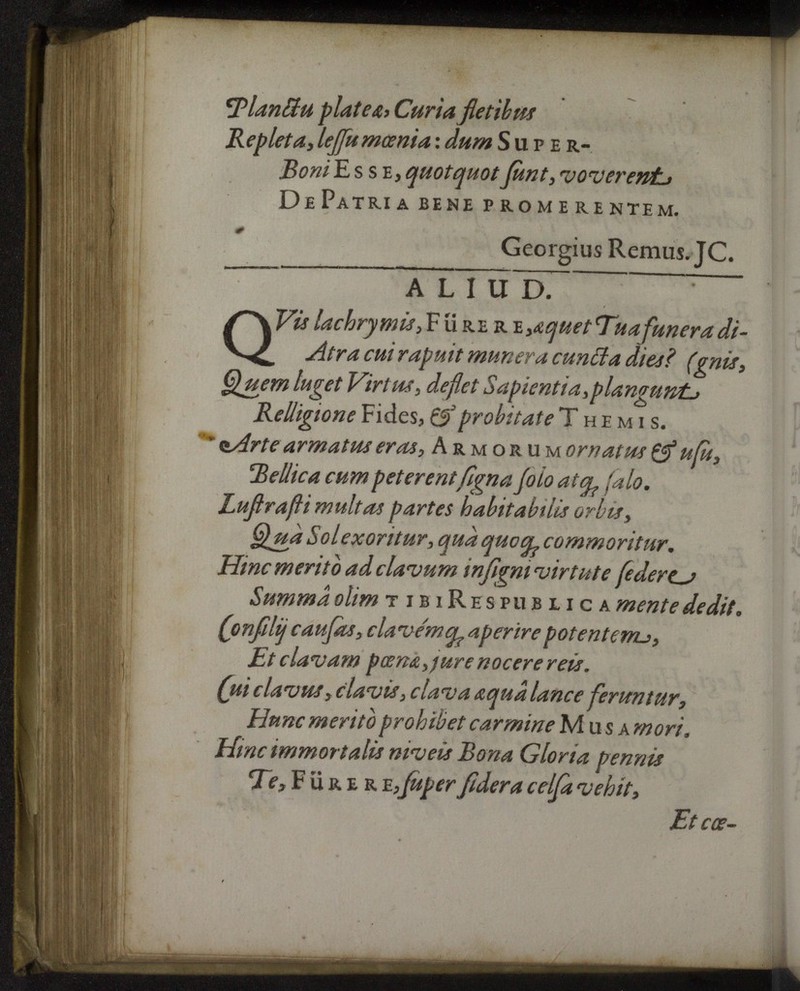 Planctu plateæ, Curia fletibus
Repleta, leſſu mœnia: dum SUPER-
Boni ESSE, quotquot ſunt, voverent,
DE PATRIA BENE PROMERENTEM.
Georgius Remus. JC.
ALIUD.
QVis lachrymis, FÜRERE, æquet Tua funera di-
Atra cui rapuit munera cuncta dies? (gnis,
Quem luget Virtus, deflet Sapientia, plangunt,
Relligione Fides, & probitate THEMIS.
Arte armatus eras, ARMORUM ornatus & uſu,
Bellica cum peterent ſigna ſolo atq; ſalo.
Luſtraſti multas partes habitabilis orbis,
Quà Sol exoritur, quà quoq; commoritur.
Hinc meritò ad clavum inſigni virtute ſedere,
Summâ olim TIBI RESPUBLICA mente dedit.
Conſilij cauſas, clavémq; aperire potentem,
Et clavam pœnâ, jure nocere reis.
Cui clavus, clavis, clava æquâ lance feruntur,
Hunc meritò prohibet carmine MUSA mori.
Hinc immortalis niveis Bona Gloria pennis
Te, FÜRERE, ſuper ſidera celſa vehit,
Et cœ-